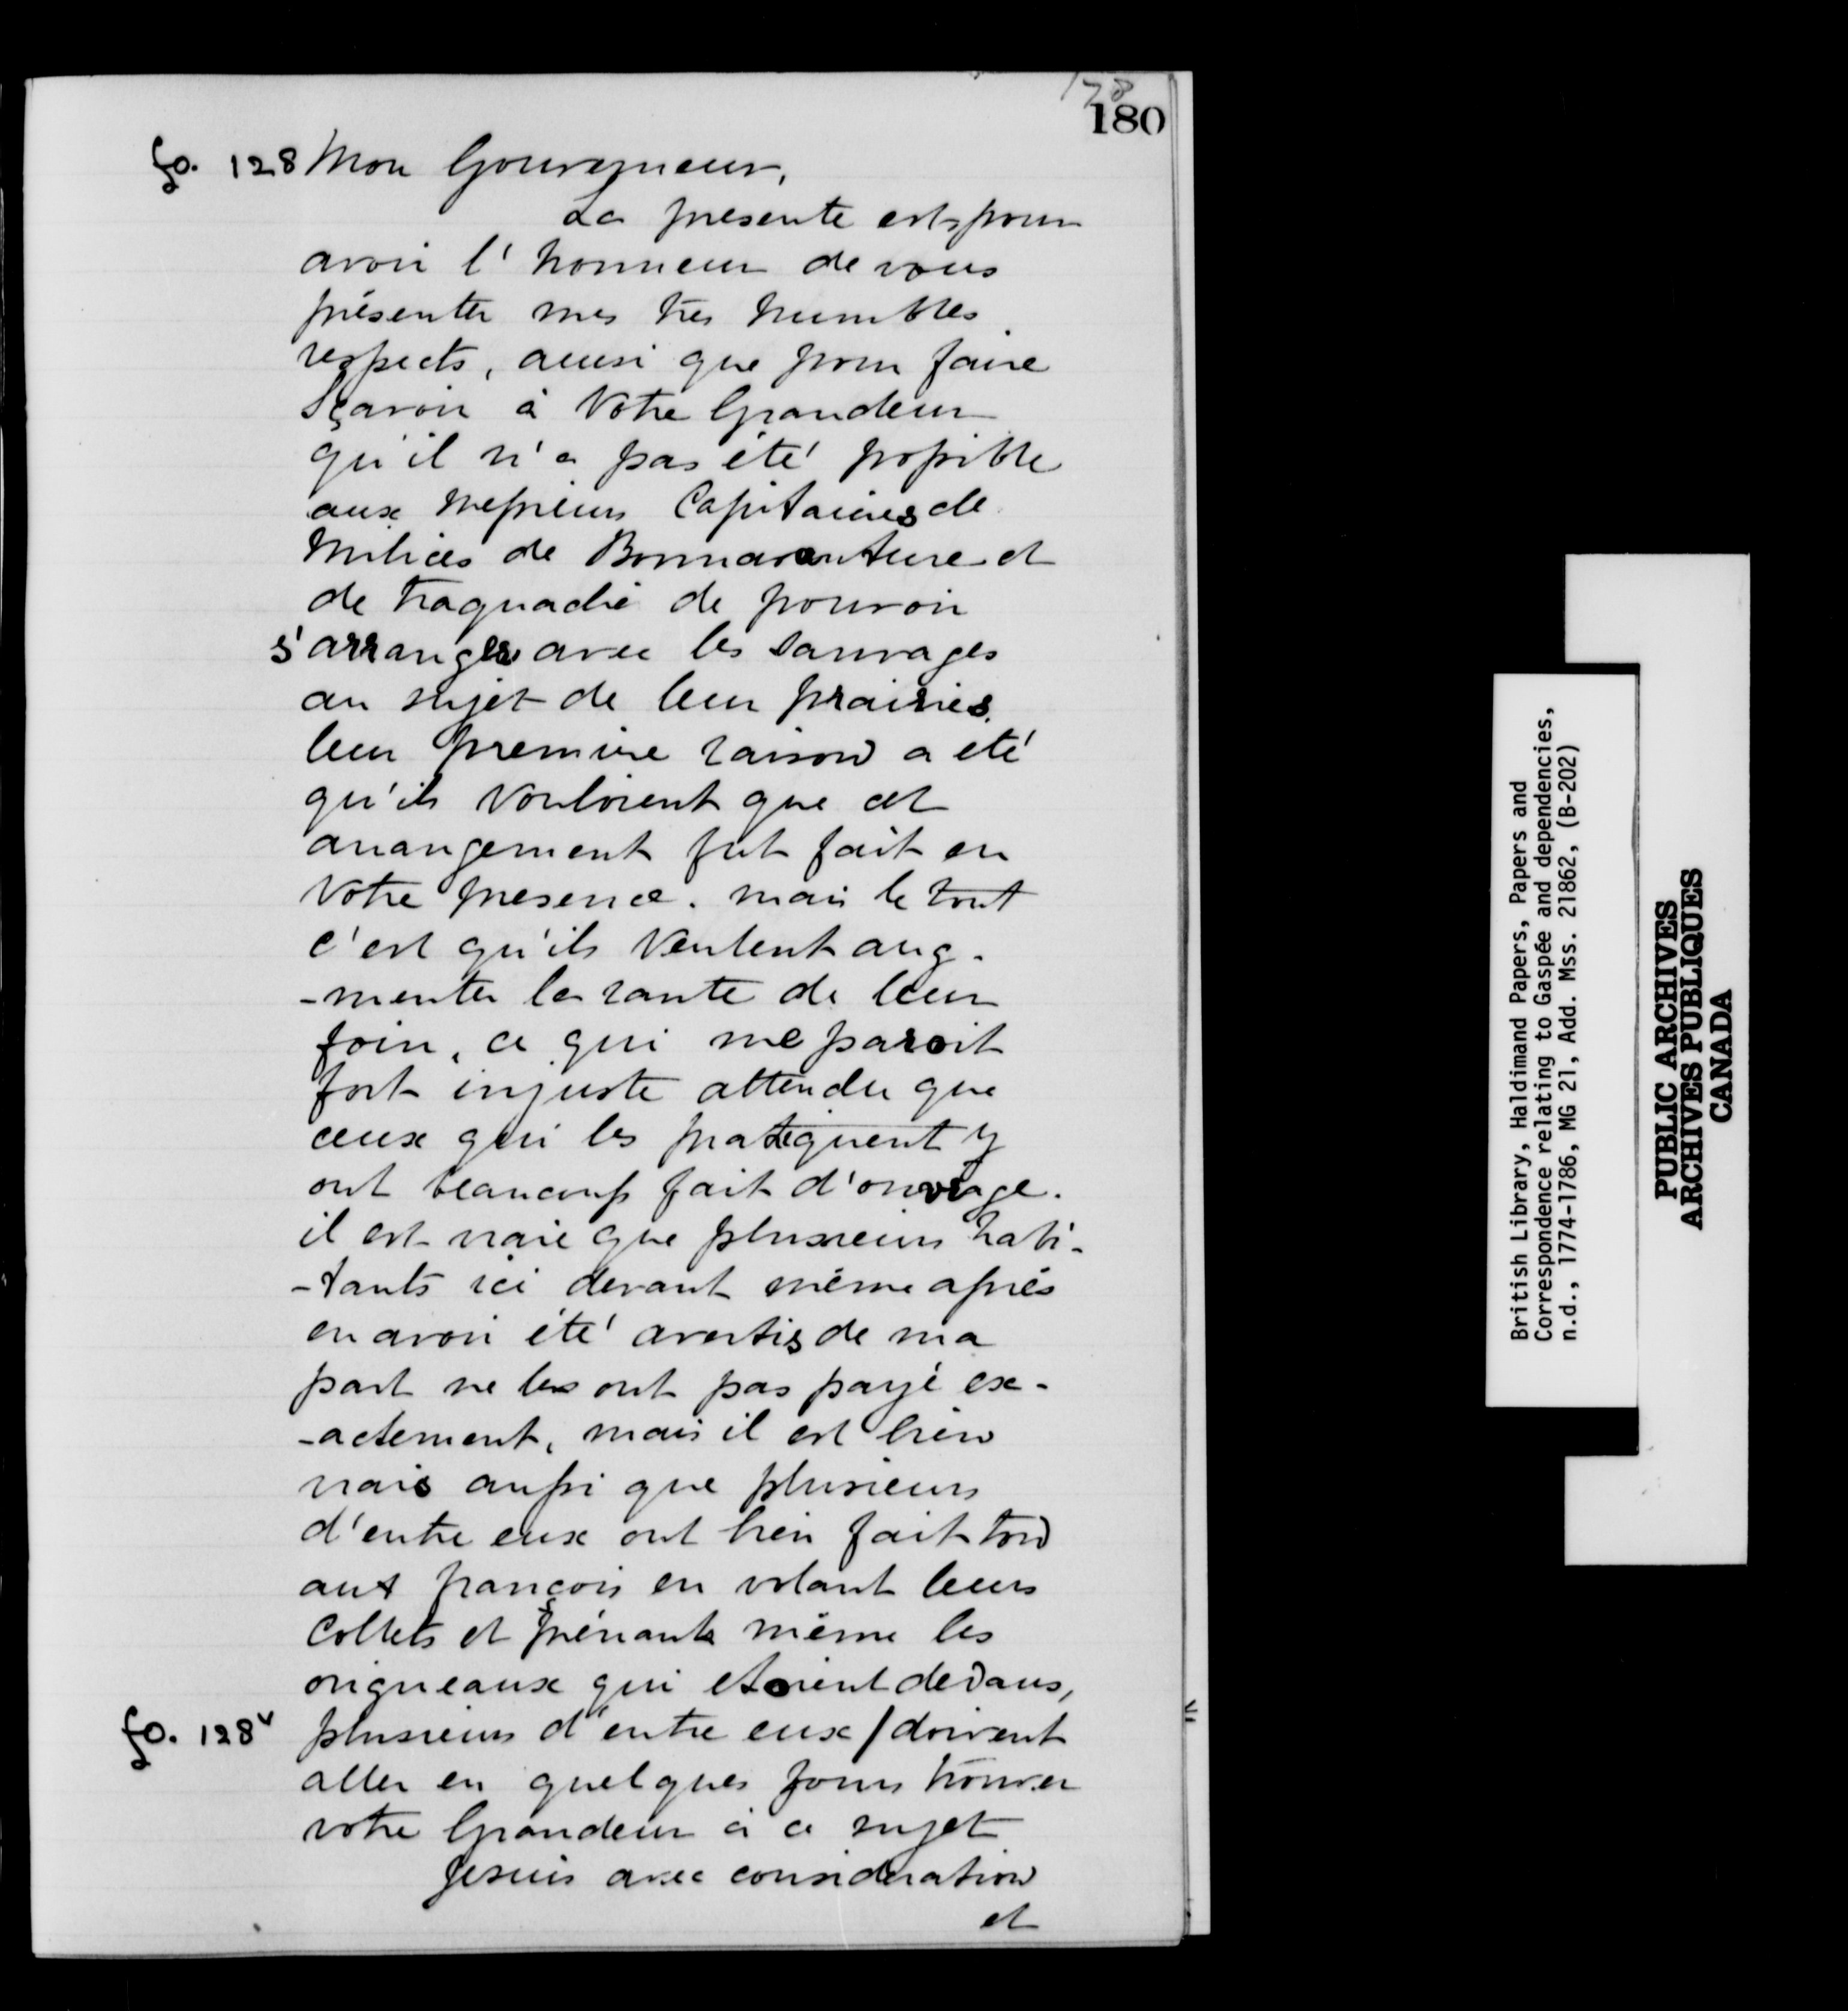 178
180
fo. 128 Mon Gouverneur,
La presente est pour
avoir l'honneur de vous
présenter mes très humbles
respects, ainsi que pour faire
Sçavoir à Votre Grandeur
qu'il n'a pas été possible
aux Messieurs Capitaines de
Milices de Bonnaventure et
de traquadié de pouvoir
s'arranger avec les sauvages
au sujet de leur prairies.
leur premiere raison a eté
qu'ils vouloient que cet
arrangement fut fait en
Votre presence. mais le tout
c'est qu'ils veulent aug-
-menter la rante de leur
foin, ce qui me paroit
fort injuste attendu que
ceux qui les pratiquent y
ont beaucoup fait d'ouvrage.
il est vraie que plusieurs habi-
-tants ici devant même après
en avoir été avertis de ma
part ne les ont pas payé ex-
-actement, mais il est bien
vrais aussi que plusieurs
d'entre eux ont bien fait tord
aux françois en volant leurs
Collets et prénants même les
origneaux qui etoient dedans,
fo. 128v plusieurs d'entre eux / doivent
aller en quelques jours trouver
votre Grandeur à ce sujet
Je suis avec consideration
et
British Library, Haldimand Papers, Papers and
Correspondence relating to Gaspée and dependencies,
n.d., 1774-1786, MG 21, Add. Mss. 21862, (B-202)
PUBLIC ARCHIVES
ARCHIVES PUBLIQUES
CANADA